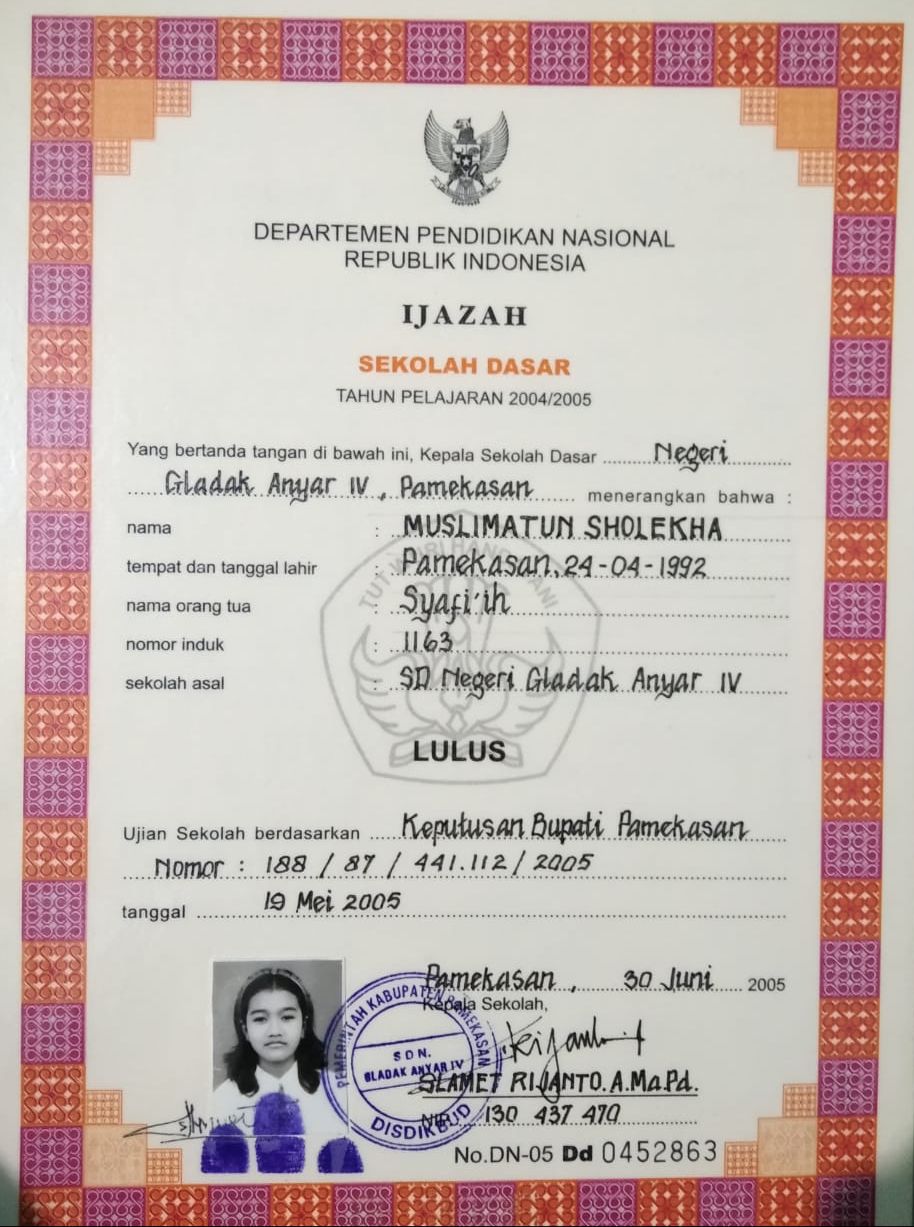 DEPARTEMEN PENDIDIKAN NASIONAL
REPUBLIK INDONESIA
IJAZAH
SEKOLAH DASAR
TAHUN PELAJARAN 2004/2005
Yang bertanda tangan di bawah ini, Kepala Sekolah Dasar Negeri
Gladak Anyar IV, Pamekasan menerangkan bahwa :
nama : MUSLIMATUN SHOLEKHA
tempat dan tanggal lahir : Pamekasan, 24-04-1992
nama orang tua : Syafi'ih
nomor induk : 1163
sekolah asal : SD Negeri Gladak Anyar IV
TUT WURI HANDAYANI
LULUS
Ujian Sekolah berdasarkan Keputusan Bupati Pamekasan
Nomor : 188 / 87 / 441.112 / 2005
tanggal 19 Mei 2005
Pamekasan, 30 Juni 2005
Kepala Sekolah,
PEMERINTAH KABUPATEN PAMEKASAN
SDN.
GLADAK ANYAR IV
DISDIKBUD
SLAMET RIJANTO. A.Ma.Pd.
NIP. 130 437 470
No.DN-05 Dd 0452863